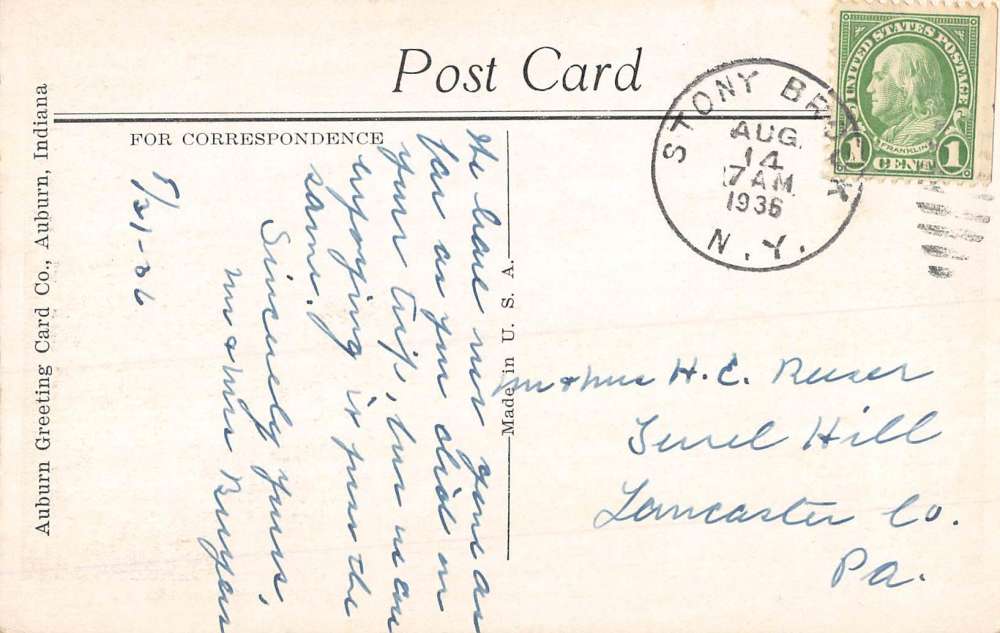 Post Card
FOR CORRESPONDENCE
Auburn Greeting Card Co., Auburn, Indiana
Made in U. S. A.
UNITED STATES POSTAGE
FRANKLIN
1 CENT 1
STONY BROOK
AUG
14
7 AM
1936
N. Y.
We have not gone as
far as you did on
your trip, but we are
enjoying it just the
same.
Sincerely yours,
Mr & Mrs
Mr & Mrs H. C.
Hill
Lancaster Co.
Pa.